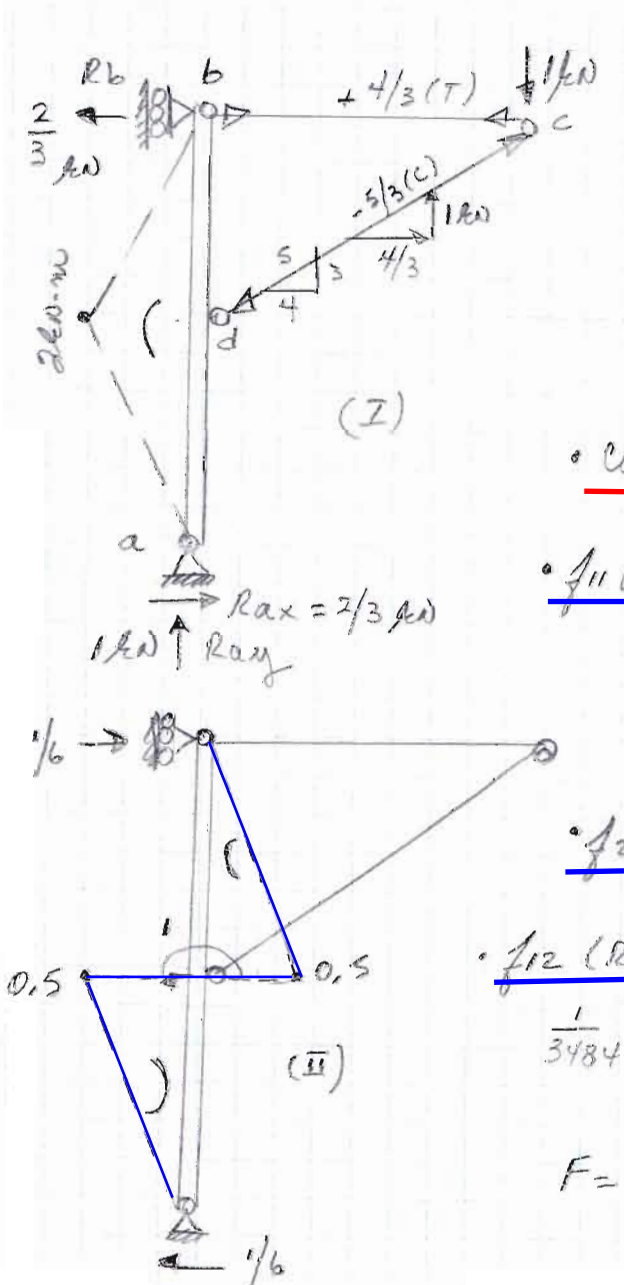 Rb b
+ 4/3 (T)
1 kN
c
2/3 kN
-5/3 (C)
1 kN
4/3
5
3
4
2 kN-m
d
(I)
a
Rax = 2/3 kN
1 kN Ray
f11
1/6
f2
1
0,5
0,5
f12 (R
1/3484
(II)
F=
1/6